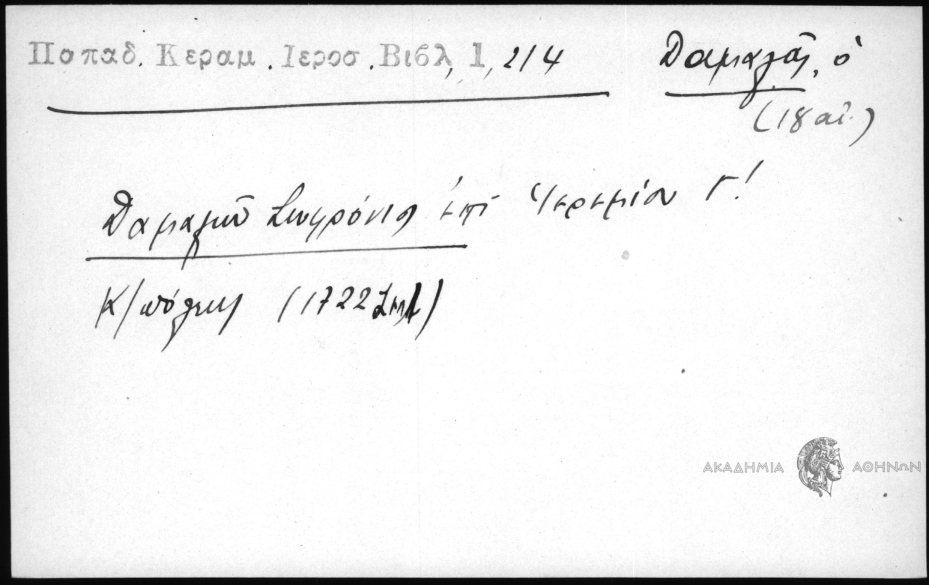 Παπαδ. Κεραμ. Ιεροσ. Βιβλ, 1, 214
Δαμαλᾶς, ὁ
(18 αἰ.)
Δαμαλοῦ Σωφρόνιος ἐπὶ Ἱερεμίου Γ!
Κ/πόλεως (1722
ΑΚΑΔΗΜΙΑ ΑΘΗΝΩΝ